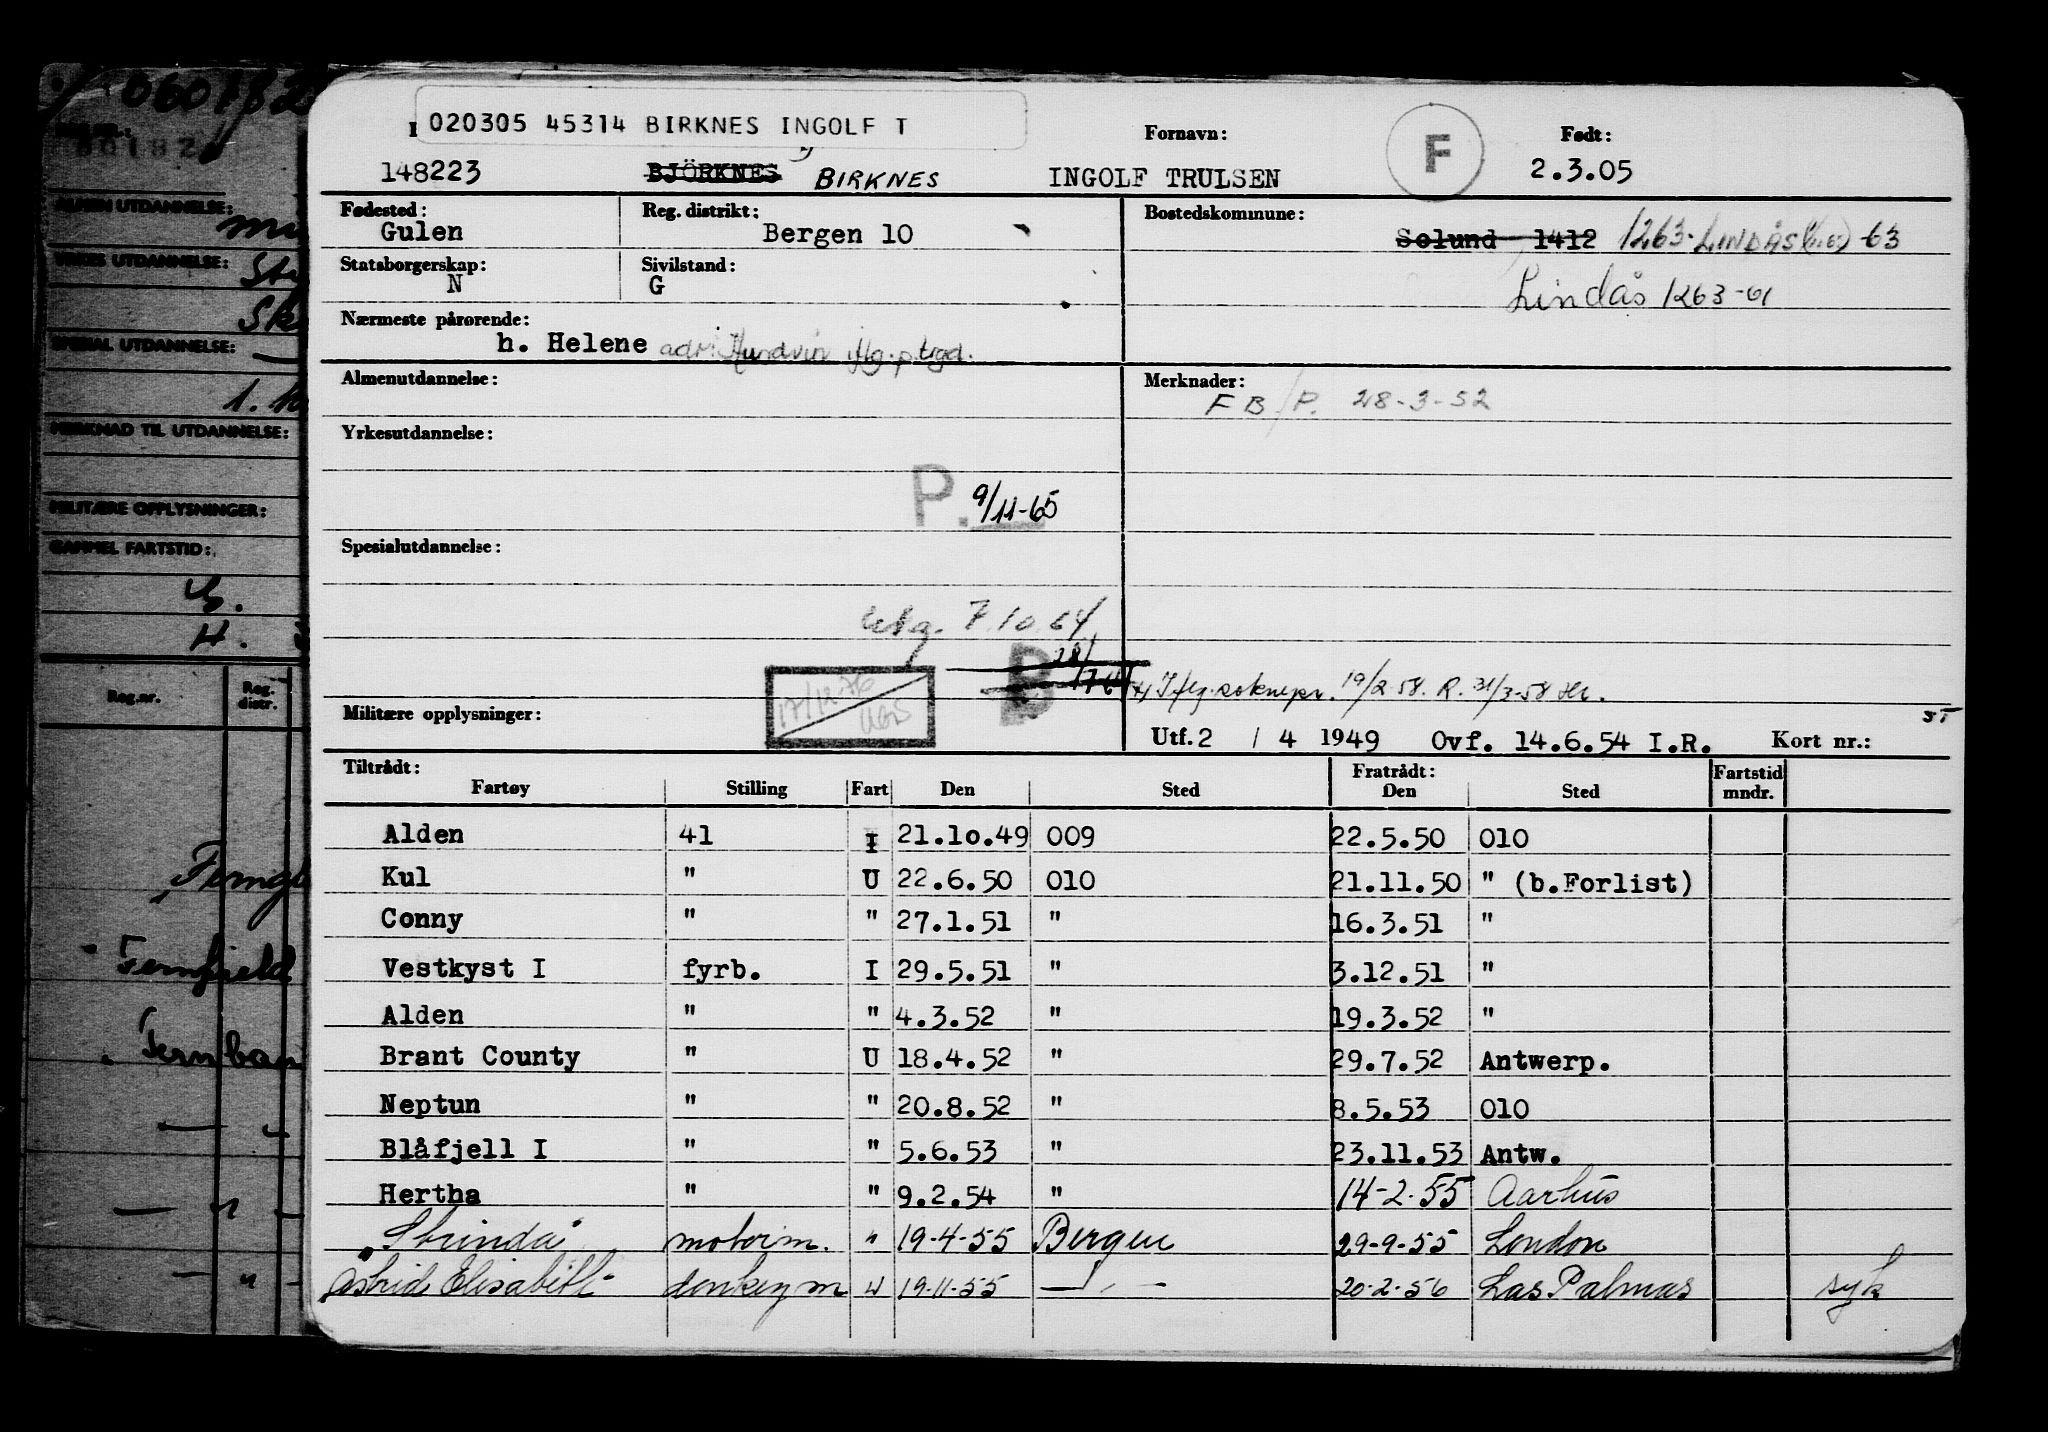 060732
020305 45314 BIRKNES INGOLF T
Fornavn:
F
Født:
148223
BJÖRKNES BIRKNES
INGOLF TRULSEN
2.3.05
Fødested:
Gulen
Reg. distrikt:
Bergen 10
Bostedskommune:
Solund 1412 1263-LINDÅS -63
Statsborgerskap:
N
Sivilstand:
G
Lindås 1263-61
Nærmeste pårørende:
h. Helene adr: Hundvin
Almenutdannelse:
Merknader:
FB/P. 28-3-52
Yrkesutdannelse:
P. 9/11-65
Spesialutdannelse:
Utg. 7.10.64
B
17/12-76
19/2-58. R. 31/3-58
Militære opplysninger:
Utf. 2 / 4 1949 Ovf. 14.6.54 I.R. Kort nr.:
Tiltrådt:
Fratrådt:
Fartstid mndr.
Fartøy Stilling Fart Den Sted Den Sted
Alden 41 I 21.10.49 009 22.5.50 010
Kul " U 22.6.50 010 21.11.50 " (b.Forlist)
Conny " " 27.1.51 " 16.3.51 "
Vestkyst I fyrb. I 29.5.51 " 3.12.51 "
Alden " " 4.3.52 " 19.3.52 "
Brant County " U 18.4.52 " 29.7.52 Antwerp.
Neptun " " 20.8.52 " 8.5.53 010
Blåfjell I " " 5.6.53 " 23.11.53 Antw.
Hertha " " 9.2.54 " 14-2-55 Aarhus
"Strinda" motorm. " 19-4-55 Bergen 29-9-55 London
Astrid Elisabeth donkeym " 19-11-55 — " — 20-2-56 Las Palmas syk
ALMEN UTDANNELSE:
YRKES UTDANNELSE:
SPESIAL UTDANNELSE:
MERKNAD TIL UTDANNELSE:
MILITÆRE OPPLYSNINGER:
GAMMEL FARTSTID:
Reg.nr.
Reg. distr.
Fernfield